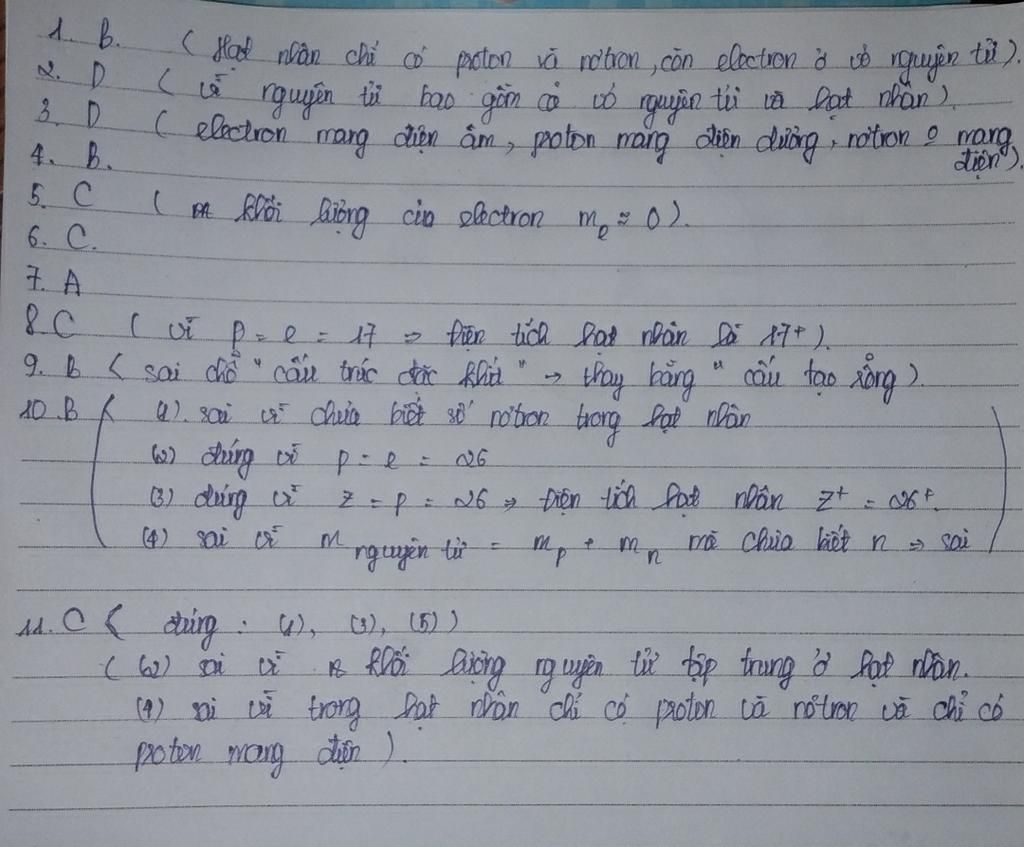 1. B. ( Hạt nhân chỉ có proton và nơtron, còn electron ở vỏ nguyên tử).
2. D ( vì nguyên tử bao gồm cả vỏ nguyên tử và hạt nhân).
3. D ( electron mang điện âm, proton mang điện dương, nơtron 0 mang
điện).
4. B.
5. C ( khối lượng của electron mₑ ≈ 0).
6. C.
7. A
8. C ( vì p = e = 17 => Điện tích hạt nhân là 17+).
9. B ( sai chỗ "cấu trúc đặc khít" → thay bằng "cấu tạo rỗng).
10. B ( (1). sai vì chưa biết số nơtron trong hạt nhân
(2) đúng vì p = e = 26
(3) đúng vì z = p = 26 => Điện tích hạt nhân z⁺ = 26⁺.
(4) sai vì m nguyên tử = mp + mn mà chưa biết n => sai )
11. C ( đúng : (1), (3), (5) )
( (2) sai vì khối lượng nguyên tử tập trung ở hạt nhân.
(4) sai vì trong hạt nhân chỉ có proton và nơtron và chỉ có
proton mang điện ).